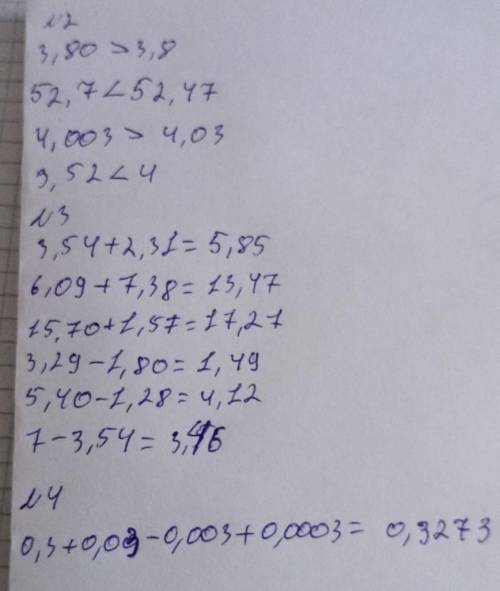 №2
3,80 > 3,8
52,7 < 52,47
4,003 > 4,03
3,52 < 4
№3
3,54 + 2,31 = 5,85
6,09 + 7,38 = 13,47
15,70 + 1,57 = 17,27
3,29 - 1,80 = 1,49
5,40 - 1,28 = 4,12
7 - 3,54 = 3,46
№4
0,3 + 0,03 - 0,003 + 0,0003 = 0,3273